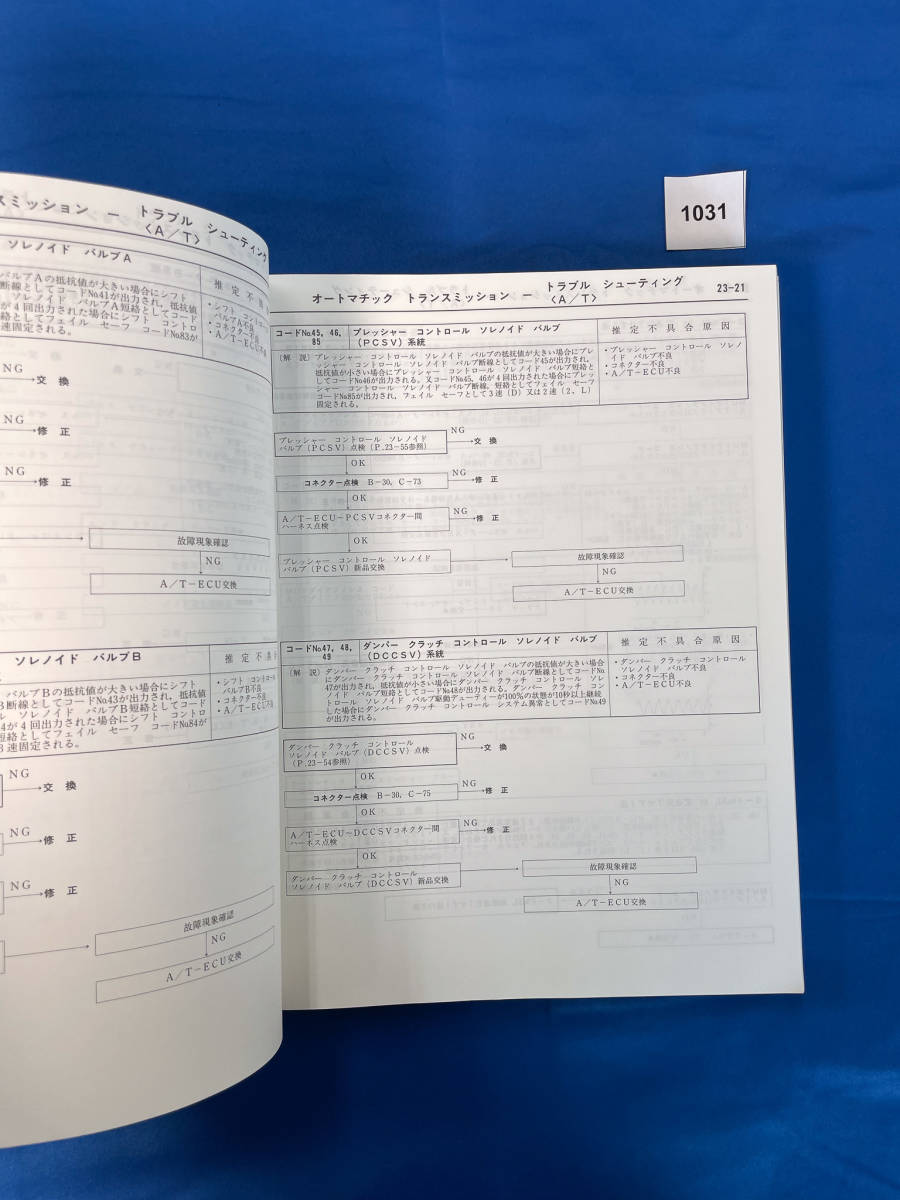 1031
スミッション － トラブル シューティング
〈A／T〉
ソレノイド バルブA
推 定 不
バルブAの抵抗値が大きい場合にシフト
断線としてコードNo.41が出力され，抵抗値
ソレノイド バルブA短絡としてコード
が4回出力された場合にシフト コントロ
絡としてフェイル セーフ コードNo.83が
速固定される。
・シフト コントロー
バルブA不良
・コネクター不良
・A／T-ECU不
NG
交 換
NG
修 正
NG
修 正
故障現象確認
NG
A／T－ECU交換
ソレノイド バルブB
推 定 不
バルブBの抵抗値が大きい場合にシフト
B断線としてコードNo.43が出力され，抵抗値
ル ソレノイド バルブB短絡としてコード
4が4回出力された場合にシフト コントロ
短絡としてフェイル セーフ コードNo.84が
3速固定される。
・シフト コントロール
バルブB不良
・コネクター不良
・A／T-ECU不
NG
交 換
NG
修 正
NG
修 正
故障現象確認
NG
A／T－ECU交換
オートマチック トランスミッション － トラブル シューティング
〈A／T〉
23-21
コードNo.45，46，
85
プレッシャー コントロール ソレノイド バルブ
（PCSV）系統
推 定 不 具 合 原 因
〔解 説〕プレッシャー コントロール ソレノイド バルブの抵抗値が大きい場合にプレ
ッシャー コントロール ソレノイド バルブ断線としてコード45が出力され，
抵抗値が小さい場合にプレッシャー コントロール ソレノイド バルブ短絡と
してコードNo.46が出力される。又コードNo.45，46が4回出力された場合にプレッ
シャー コントロール ソレノイド バルブ断線，短絡としてフェイル セーフ
コードNo.85が出力され，フェイル セーフとして3速（D）又は2速（2，L）
固定される。
・プレッシャー コントロール ソレノ
イド バルブ不良
・コネクター不良
・A／T-ECU不良
プレッシャー コントロール ソレノイド
バルブ（PCSV）点検（P.23－55参照）
NG
交 換
OK
コネクター点検 B－30，C－73
NG
修 正
OK
A／T－ECU～PCSVコネクター間
ハーネス点検
NG
修 正
OK
プレッシャー コントロール ソレノイド
バルブ（PCSV）新品交換
故障現象確認
NG
A／T－ECU交換
コードNo.47，48，
49
ダンパー クラッチ コントロール ソレノイド バルブ
（DCCSV）系統
推 定 不 具 合 原 因
〔解 説〕ダンパー クラッチ コントロール ソレノイド バルブの抵抗値が大きい場合
にダンパー クラッチ コントロール ソレノイド バルブ断線としてコードNo.
47が出力され，抵抗値が小さい場合にダンパー クラッチ コントロール ソレ
ノイド バルブ短絡としてコードNo.48が出力される。ダンパー クラッチ コン
トロール ソレノイド バルブ駆動デューティーが100％の状態が10秒以上継続
した場合にダンパー クラッチ コントロール システム異常としてコードNo.49
が出力される。
・ダンパー クラッチ コントロール
ソレノイド バルブ不良
・コネクター不良
・A／T-ECU不良
ダンパー クラッチ コントロール
ソレノイド バルブ（DCCSV）点検
（P.23－54参照）
NG
交 換
OK
コネクター点検 B－30，C－75
NG
修 正
OK
A／T－ECU～DCCSVコネクター間
ハーネス点検
NG
修 正
OK
ダンパー クラッチ コントロール
ソレノイド バルブ（DCCSV）新品交換
故障現象確認
NG
A／T－ECU交換